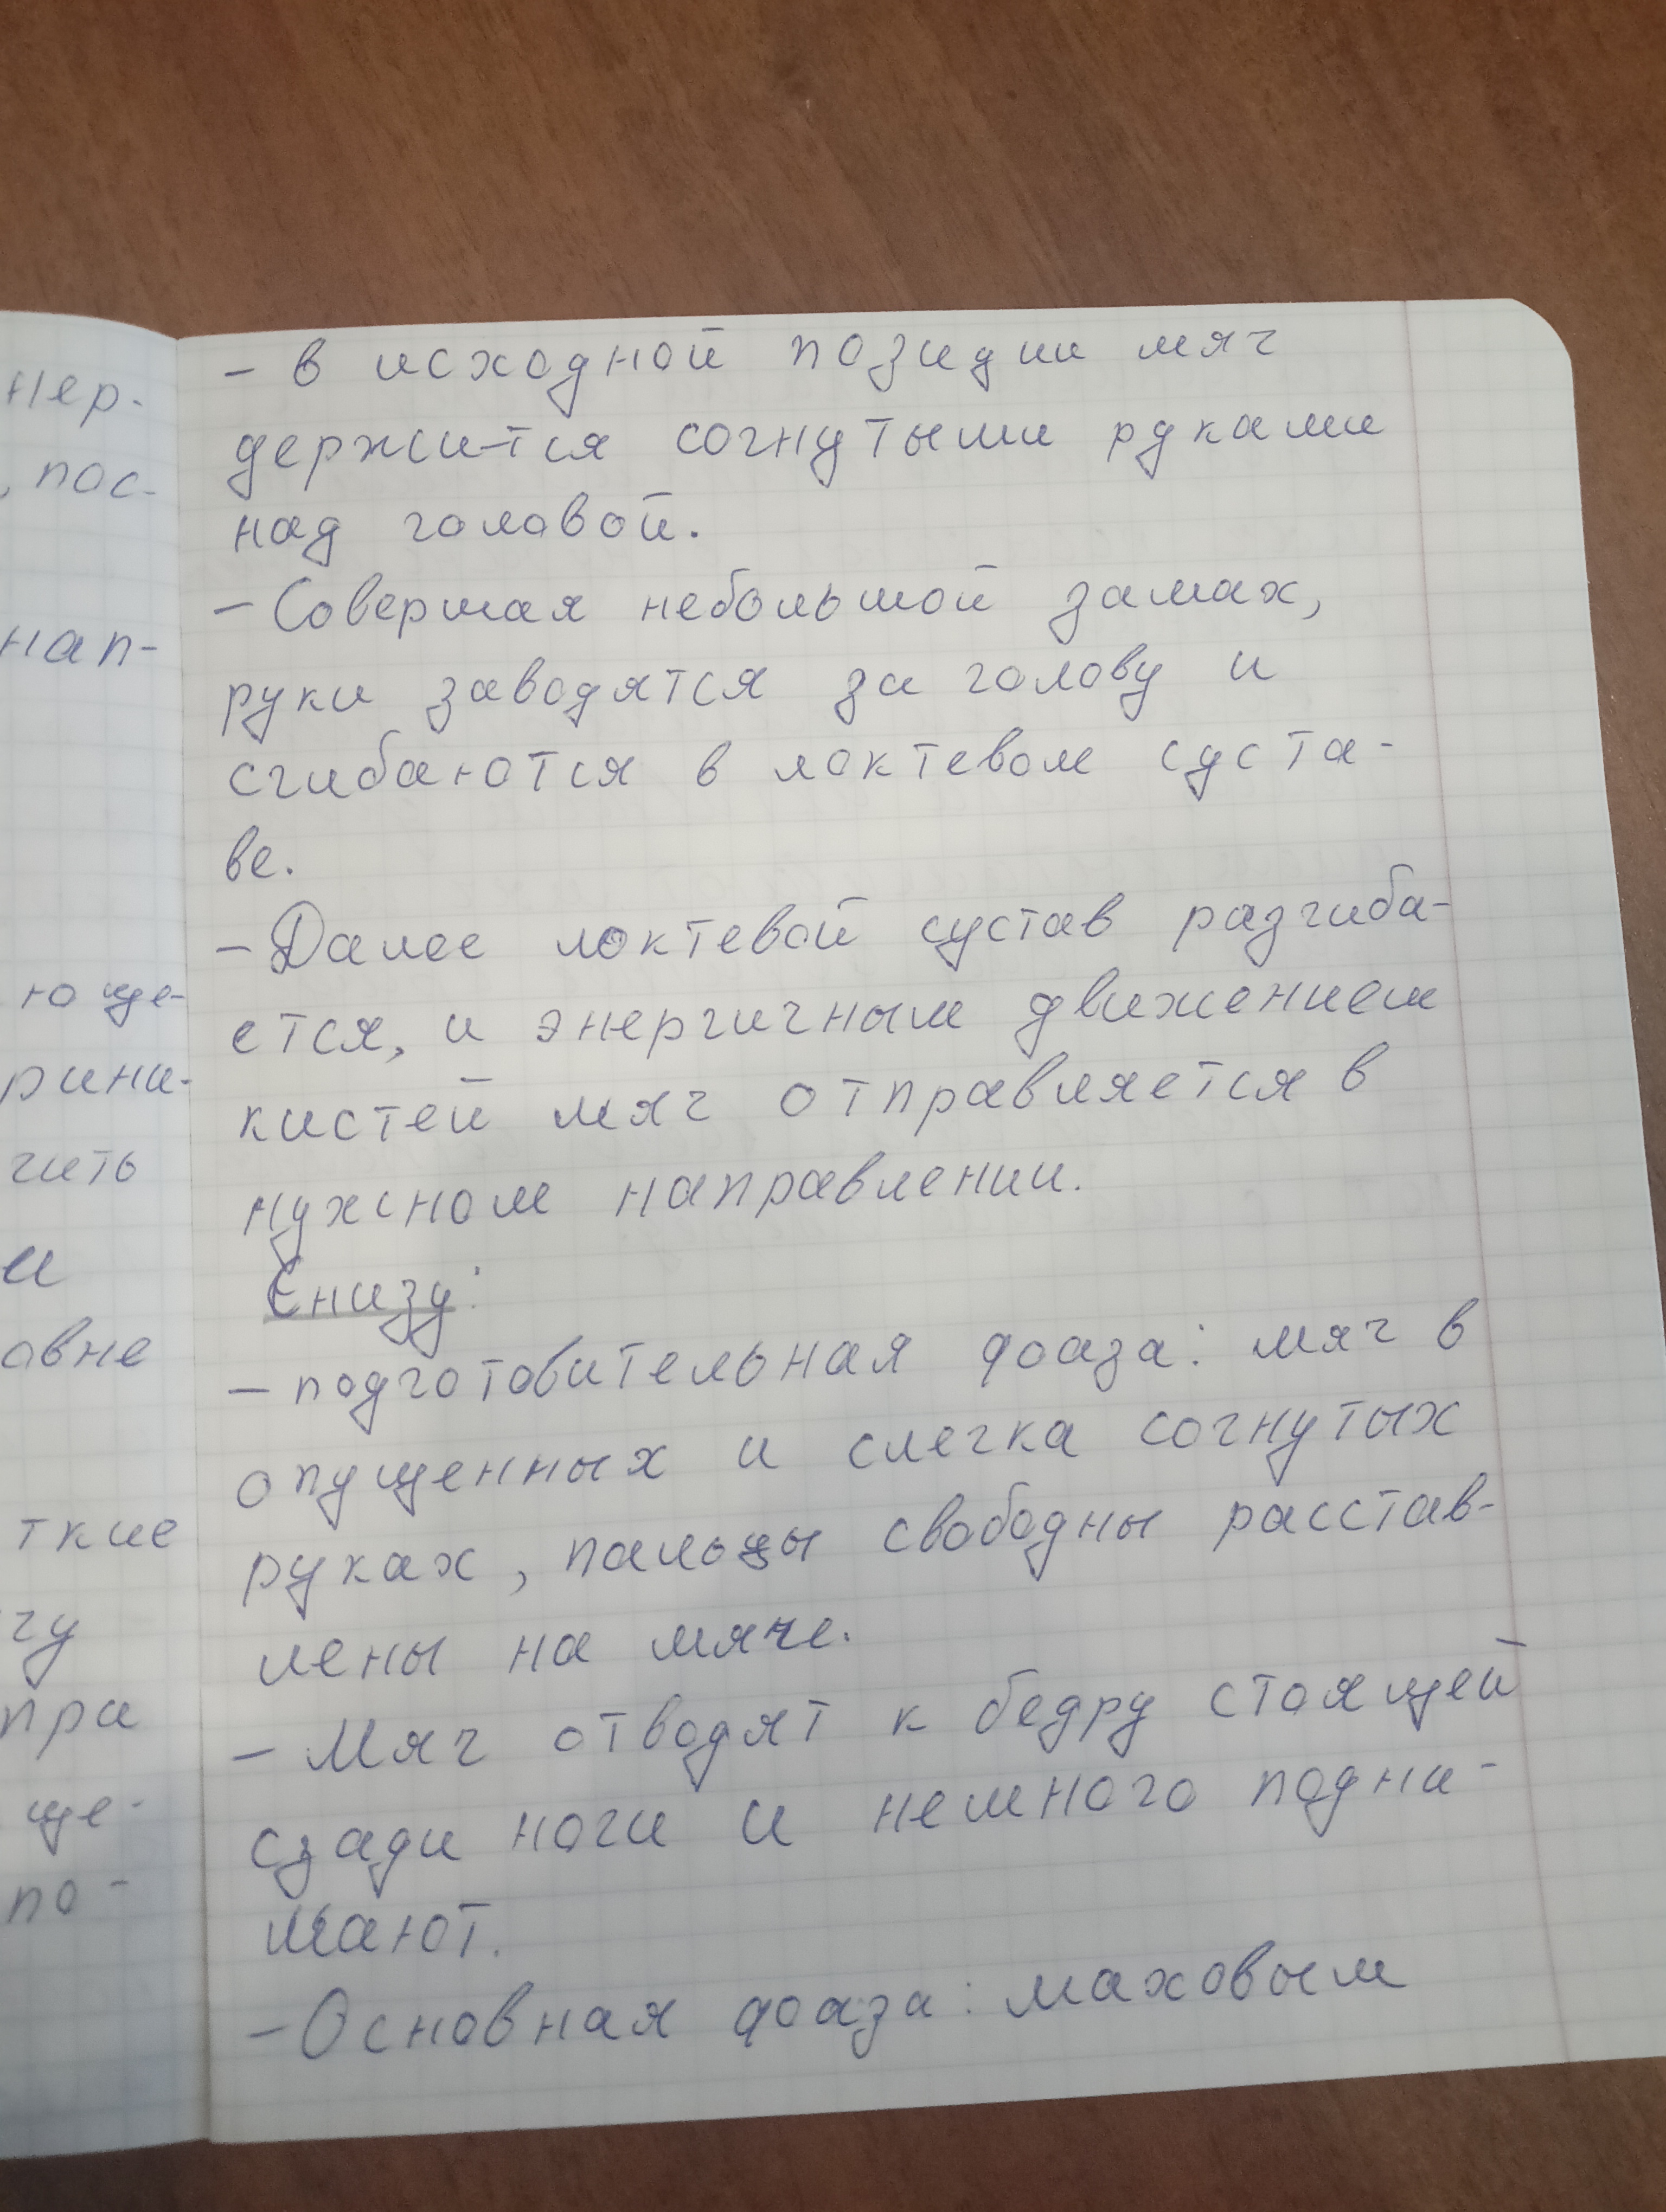 нер-
, пос-
нап-
юще-
рини-
чить
и
овне
ткие
гу
при
ще-
по-
- в исходной позиции мяч
держится согнутыми руками
над головой.
- Совершая небольшой замах,
руки заводятся за голову и
сгибаются в локтевом суста-
ве.
- Далее локтевой сустав разгиба-
ется, и энергичным движением
кистей мяч отправляется в
нужном направлении.
Снизу:
- подготовительная фаза: мяч в
опущенных и слегка согнутых
руках, пальцы свободны расстав-
лены на мяче.
- Мяч отводят к бедру стоящей
сзади ноги и немного подни-
мают.
- Основная фаза: маховым